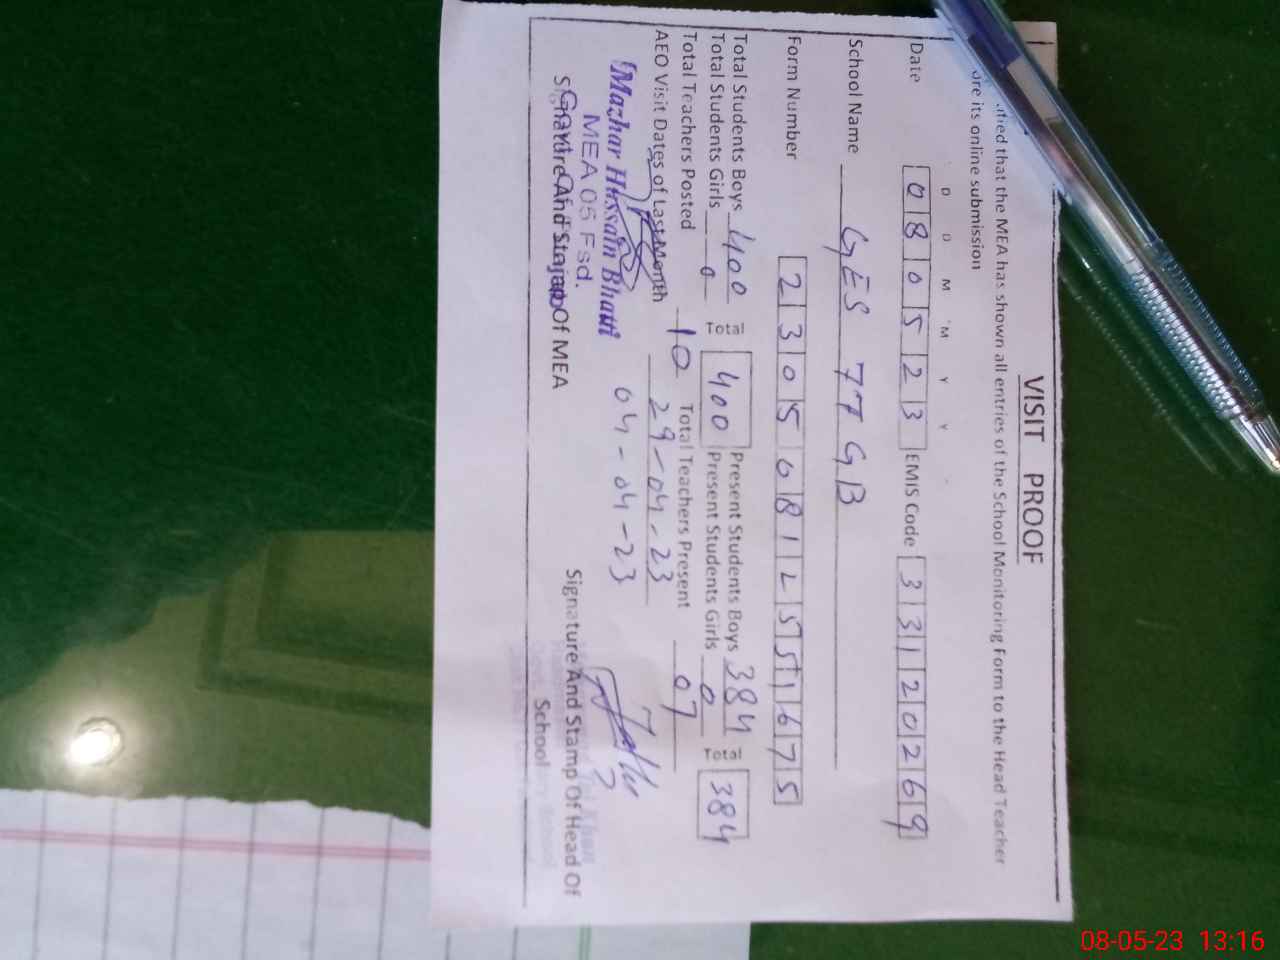 VISIT PROOF
ified that the MEA has shown all entries of the School Monitoring Form to the Head Teacher
ore its online submission
D D M M Y Y
Date 080523 EMIS Code 33120269
School Name GES 77 GB
Form Number 23050812551675
Total Students Boys 400 Total 400 Present Students Boys 384 Total 384
Total Students Girls 0 Present Students Girls 0
Total Teachers Posted 10 Total Teachers Present 07
AEO Visit Dates of Last Month 29-04-23
04-04-23
Mazhar Hussain Bhatti
MEA 05 Fsd.
Signature And Stamp Of MEA
Signature And Stamp Of Head Of
School
08-05-23 13:16